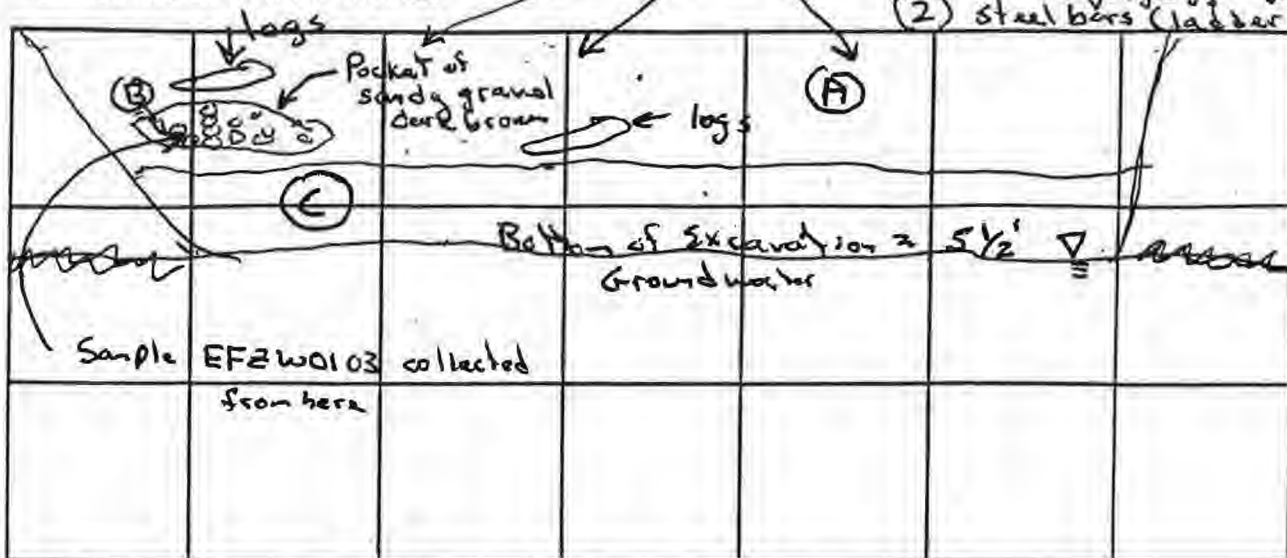 (2) steel bars (ladder
logs
Pocket of
sandy gravel
dark brown
(B)
(A)
logs
(C)
Bottom of Excavation ≈ 5 1/2'
Groundwater
Sample EFZW0103 collected
from here